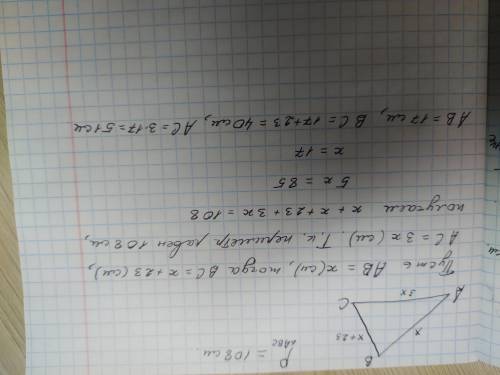 P△ABC = 108 см.
B
x
x + 23
A
3x
C
Пусть AB = x (см), тогда BC = x + 23 (см),
AC = 3x (см). Т.к. периметр равен 108 см,
получаем x + x + 23 + 3x = 108
5x = 85
x = 17
AB = 17 см, BC = 17 + 23 = 40 см, AC = 3·17 = 51 см